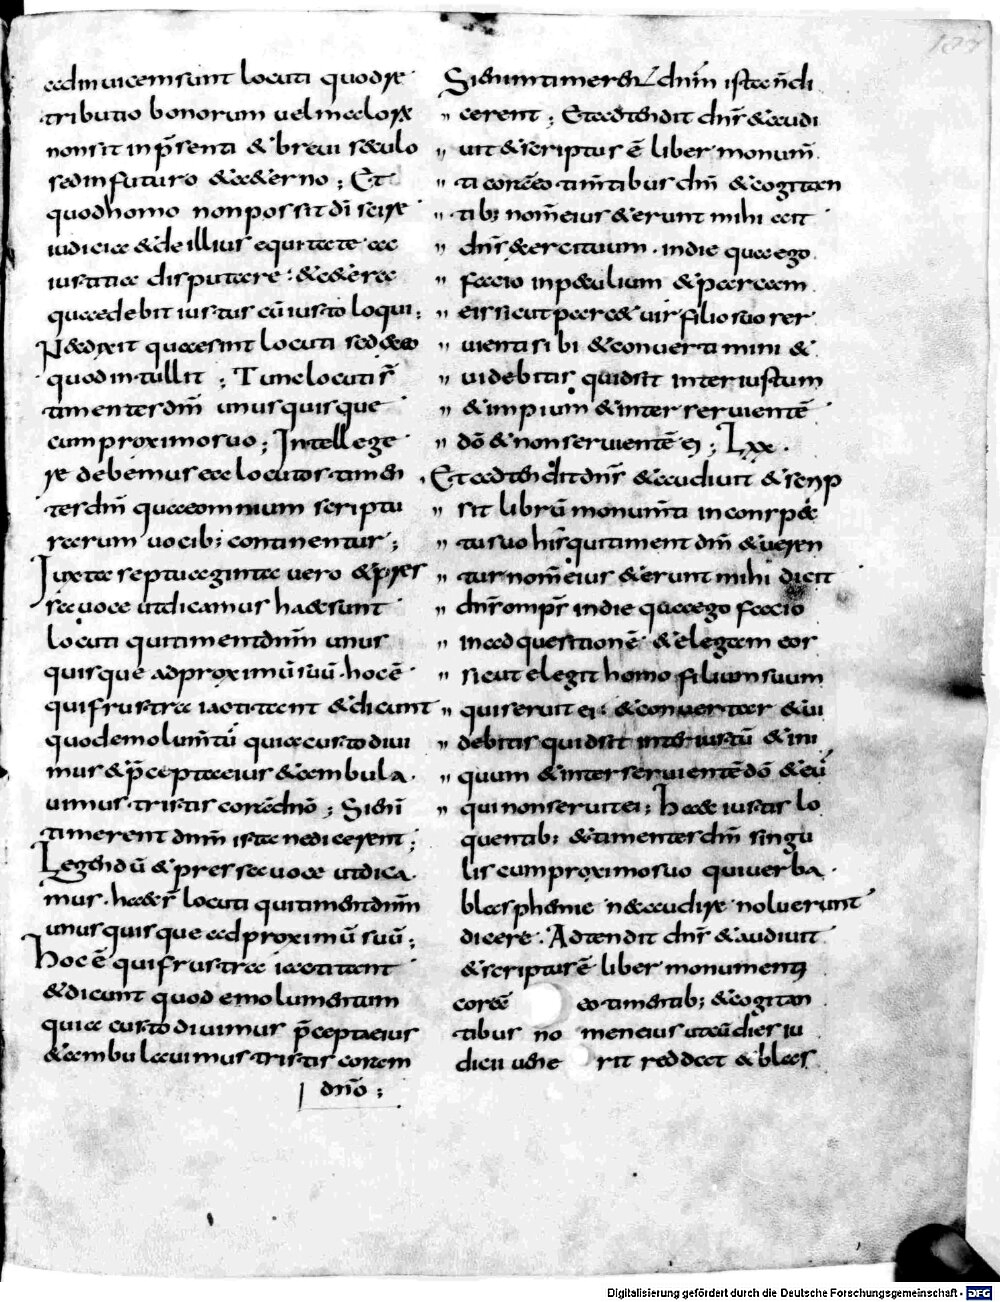 ad inuicem sunt locuti quod re
tributio bonorum uel malorũ
non sit in p̃senti & breui sęculo
sed in futuro & ęterno ; Et
quod homo non possit dĩ scire
iudicia & de illius equitate ac
iustitia disputare : & ad ea
quae debit iustus cũ iusto loqui ;
N& dixit quae sint locuti sed
quod intullit ; Tunc locuti s̃
timentes dñm unus quisque
cum proximo suo ; Intellege
re debemus ea locutos timen
tes dñm quae omnium scriptu
rarum uocib; continentur ;
Iuxta septuaginta uero & pres
sa uoce ut dicamus haec sunt
locuti qui timent dñm unus
quisque ad proximũ suũ . hoc ẽ
qui frustra iactitant & dicunt
quod emolumt̃ũ quia custodiui
mus & p̃cepta eius & ambula
uimus tristes corã dño ; Si eñi
timerent dñm ista ne dicerent ;
Legendũ & pressa uoce ut dica
mus . haec s̃ locuti qui timent dñm
unus quisque ad proximũ suũ ;
Hoc ẽ qui frustra iactitant
& dicunt quod emolumentum
quia custodiuimus p̃cepta eius
& ambulauimus tristis coram
dño ;
Si eni timerent dñm ista ñ di
" cerent ; Et adtendit dñs & audi
" uit & scriptus ẽ liber monum̃
" ti corã eo tim̃tibus dñm & cogitan
" tib; nom̃ eius & erunt mihi ait
" dñs exercituum . in die qua ego
" facio in peculium & parcam
" eis sicut parcet uir filio suo ser
" uienti sibi & conuertimini &
" uidebitis quid sit inter iustum
" & impium & inter seruientẽ
" dõ & non seruientẽ ei ; Lxx .
Et adtendit dñs & audiuit & scrip
" sit librũ monum̃ti in conspec
" tu suo his qui timent dñm & ueren
" tur nom̃ eius & erunt mihi dicit
" dñs omps̃ in die qua ego facio
" in adquestionẽ & elegam eos
" sicut elegit homo filium suum
" qui seruit ei : & conuertar & ui
" debitis quid sit inter iustũ & ini
" quum & inter seruientẽ dõ & eũ
" qui non seruit ei ; Haec iustis lo
quentib; & timentes dñm singu
lis cum proximo suo qui uerba
blasphemie nec audire noluerunt
dicere . Adtendit dñs & audiuit
& scriptus ẽ liber monumenti
corã eo timentib; & cogitan
tibus nomen eius ut cũ dies iu
dicii uenerit reddat & blas